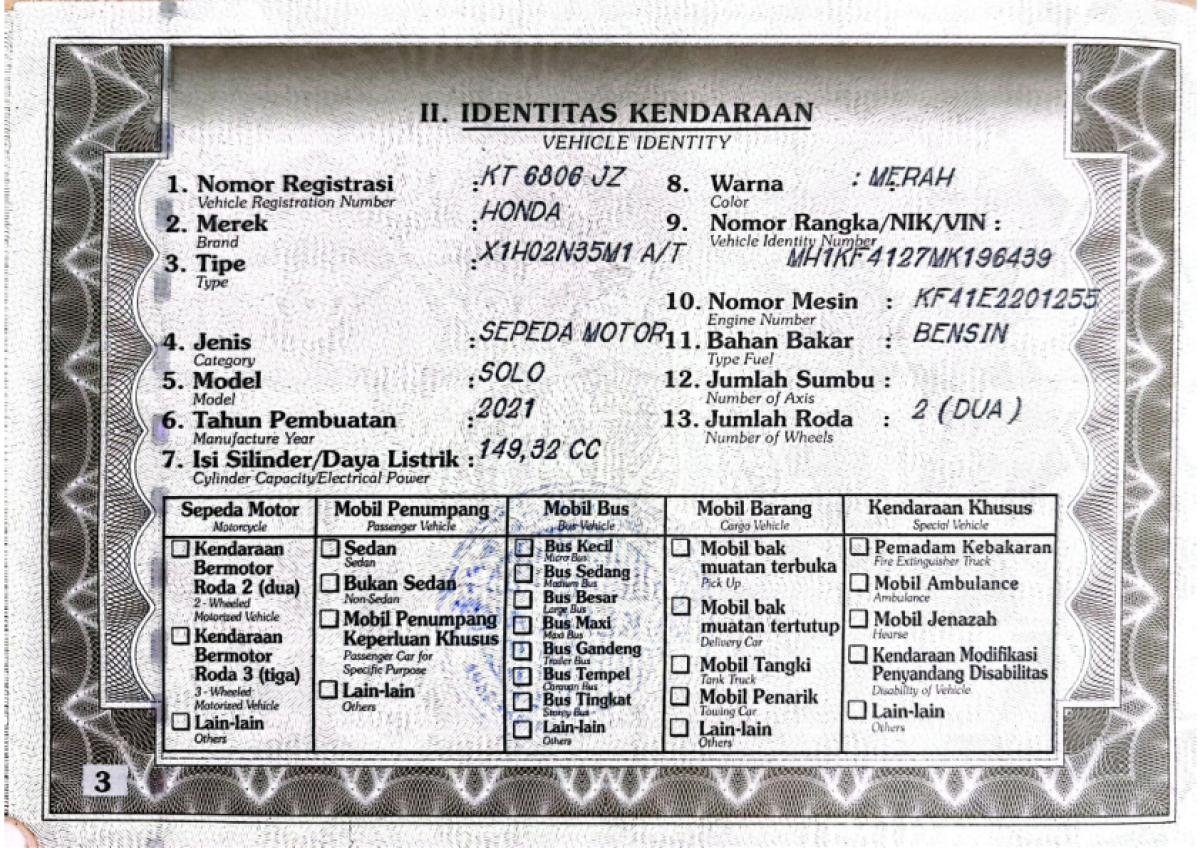 II. IDENTITAS KENDARAAN
VEHICLE IDENTITY
1. Nomor Registrasi : KT 6806 JZ
Vehicle Registration Number
2. Merek : HONDA
Brand
3. Tipe : X1H02N35M1 A/T
Type
4. Jenis : SEPEDA MOTOR
Category
5. Model : SOLO
Model
6. Tahun Pembuatan : 2021
Manufacture Year
7. Isi Silinder/Daya Listrik : 149,32 CC
Cylinder Capacity/Electrical Power
8. Warna : MERAH
Color
9. Nomor Rangka/NIK/VIN :
Vehicle Identity Number
MH1KF4127MK196439
10. Nomor Mesin : KF41E2201255
Engine Number
11. Bahan Bakar : BENSIN
Type Fuel
12. Jumlah Sumbu :
Number of Axis
13. Jumlah Roda : 2 (DUA)
Number of Wheels
Sepeda Motor
Motorcycle
Kendaraan
Bermotor
Roda 2 (dua)
2 - Wheeled
Motorized Vehicle
Kendaraan
Bermotor
Roda 3 (tiga)
3 - Wheeled
Motorized Vehicle
Lain-lain
Others
Mobil Penumpang
Passenger Vehicle
Sedan
Sedan
Bukan Sedan
Non-Sedan
Mobil Penumpang
Keperluan Khusus
Passenger Car for
Specific Purpose
Lain-lain
Others
Mobil Bus
Bus Vehicle
Bus Kecil
Micro Bus
Bus Sedang
Medium Bus
Bus Besar
Large Bus
Bus Maxi
Maxi Bus
Bus Gandeng
Trailer Bus
Bus Tempel
Caravan Bus
Bus Tingkat
Storey Bus
Lain-lain
Others
Mobil Barang
Cargo Vehicle
Mobil bak
muatan terbuka
Pick Up
Mobil bak
muatan tertutup
Delivery Car
Mobil Tangki
Tank Truck
Mobil Penarik
Towing Car
Lain-lain
Others
Kendaraan Khusus
Special Vehicle
Pemadam Kebakaran
Fire Extinguisher Truck
Mobil Ambulance
Ambulance
Mobil Jenazah
Hearse
Kendaraan Modifikasi
Penyandang Disabilitas
Disability of Vehicle
Lain-lain
Others
3